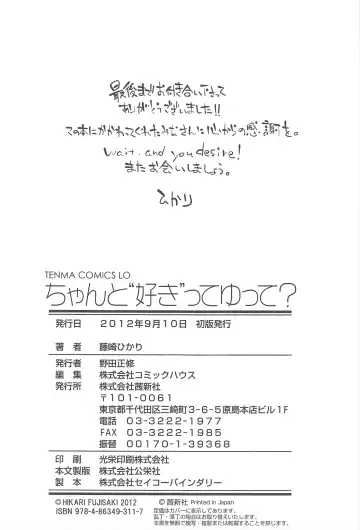 最後までお付き合い下さって
ありがとうございました!!
この本にかかわってくれたみなさんに心からの感謝を。
wait. and you desire!
またお会いしましょう。
ひかり
TENMA COMICS LO
ちゃんと“好き”ってゆって?
発行日 2012年9月10日 初版発行
著者 藤崎ひかり
発行者 野田正修
編集 株式会社コミックハウス
発行所 株式会社茜新社
〒101-0061
東京都千代田区三崎町3-6-5原島本店ビル1F
電話 03-3222-1977
FAX 03-3222-1985
振替 00170-1-39368
印刷 光栄印刷株式会社
本文製版 株式会社公栄社
製本 株式会社セイコーバインダリー
©HIKARI FUJISAKI 2012 ©茜新社 Printed in Japan
ISBN 978-4-86349-311-7
定価はカバーに表示してあります。
乱丁・落丁の場合はお取り替えいたします。
本書を無断で複写・複製または転載することを禁じます。